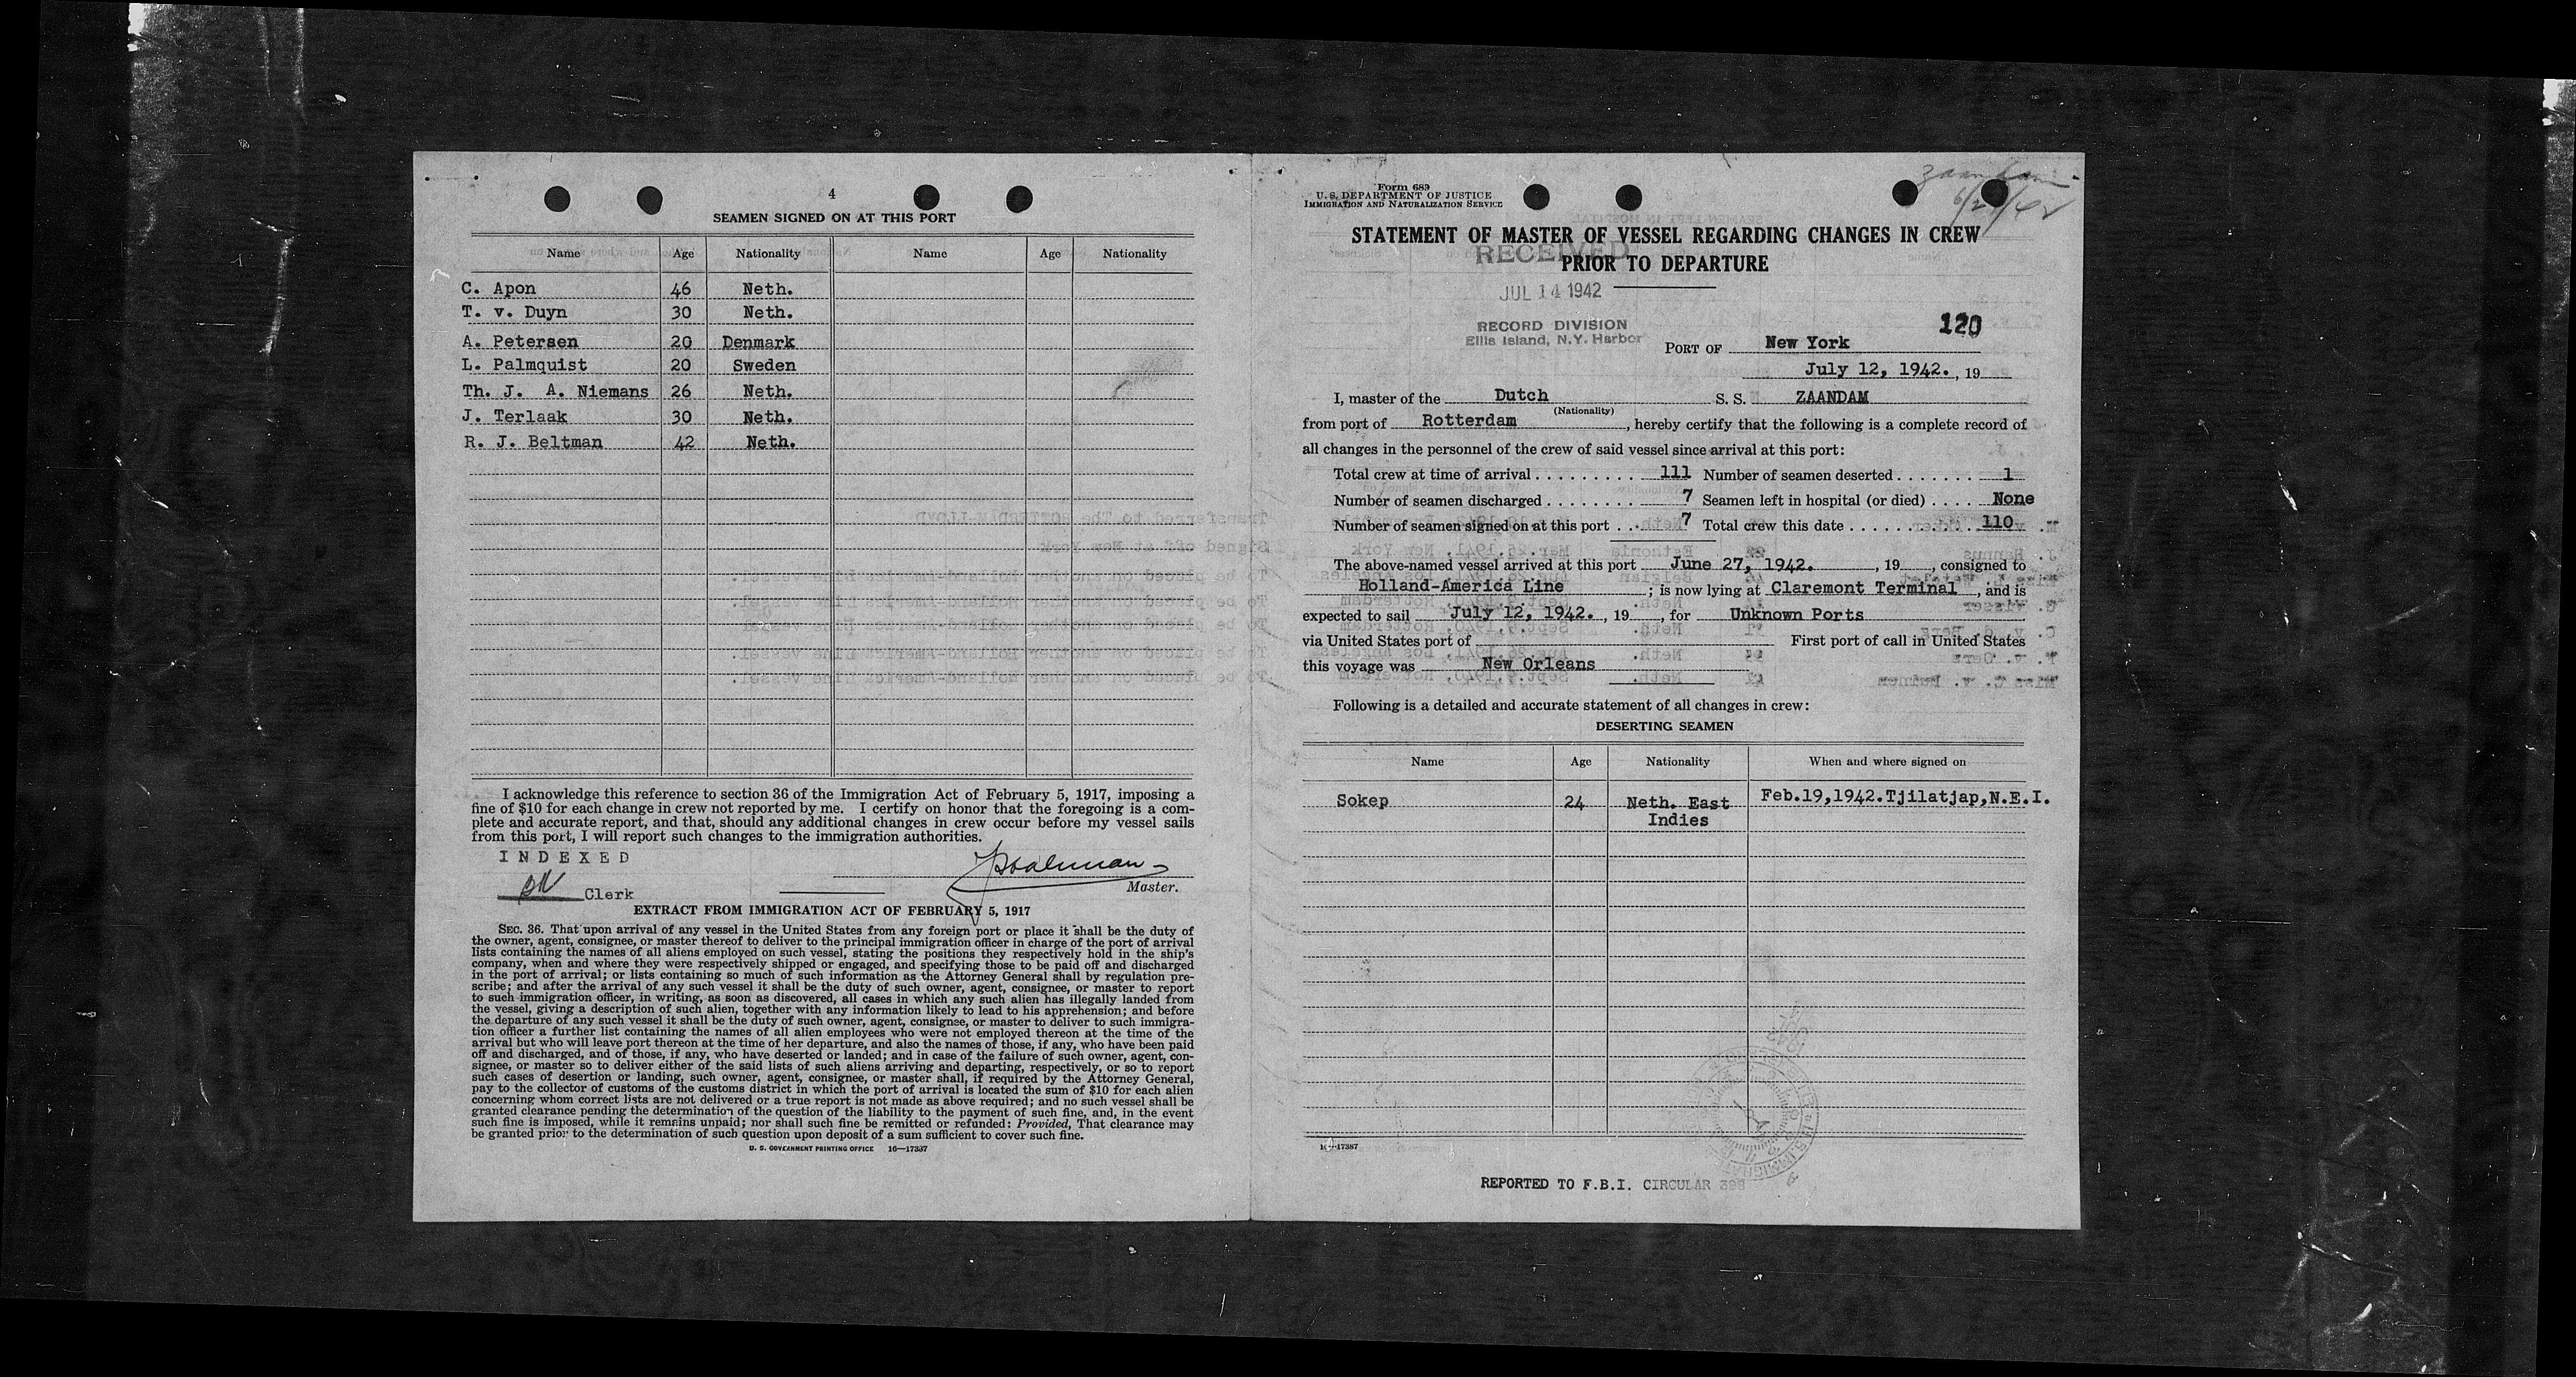 4
SEAMEN SIGNED ON AT THIS PORT
Name Age Nationality Name Age Nationality
C. Apon 46 Neth.
T. v. Duyn 30 Neth.
A. Petersen 20 Denmark
L. Palmquist 20 Sweden
Th. J. A. Niemans 26 Neth.
J. Terlaak 30 Neth.
R. J. Beltman 42 Neth.
I acknowledge this reference to section 36 of the Immigration Act of February 5, 1917, imposing a
fine of $10 for each change in crew not reported by me. I certify on honor that the foregoing is a com-
plete and accurate report, and that, should any additional changes in crew occur before my vessel sails
from this port, I will report such changes to the immigration authorities.
INDEXED
Clerk
Master.
EXTRACT FROM IMMIGRATION ACT OF FEBRUARY 5, 1917
SEC. 36. That upon arrival of any vessel in the United States from any foreign port or place it shall be the duty of
the owner, agent, consignee, or master thereof to deliver to the principal immigration officer in charge of the port of arrival
lists containing the names of all aliens employed on such vessel, stating the positions they respectively hold in the ship's
company, when and where they were respectively shipped or engaged, and specifying those to be paid off and discharged
in the port of arrival; or lists containing so much of such information as the Attorney General shall by regulation pre-
scribe; and after the arrival of any such vessel it shall be the duty of such owner, agent, consignee, or master to report
to such immigration officer, in writing, as soon as discovered, all cases in which any such alien has illegally landed from
the vessel, giving a description of such alien, together with any information likely to lead to his apprehension; and before
the departure of any such vessel it shall be the duty of such owner, agent, consignee, or master to deliver to such immigra-
tion officer a further list containing the names of all alien employees who were not employed thereon at the time of the
arrival but who will leave port thereon at the time of her departure, and also the names of those, if any, who have been paid
off and discharged, and of those, if any, who have deserted or landed; and in case of the failure of such owner, agent, con-
signee, or master so to deliver either of the said lists of such aliens arriving and departing, respectively, or so to report
such cases of desertion or landing, such owner, agent, consignee, or master shall, if required by the Attorney General,
pay to the collector of customs of the customs district in which the port of arrival is located the sum of $10 for each alien
concerning whom correct lists are not delivered or a true report is not made as above required; and no such vessel shall be
granted clearance pending the determination of the question of the liability to the payment of such fine, and, in the event
such fine is imposed, while it remains unpaid; nor shall such fine be remitted or refunded: Provided, That clearance may
be granted prior to the determination of such question upon deposit of a sum sufficient to cover such fine.
U. S. GOVERNMENT PRINTING OFFICE 16—17387
Form 689
U. S. DEPARTMENT OF JUSTICE
IMMIGRATION AND NATURALIZATION SERVICE
Zaandam
STATEMENT OF MASTER OF VESSEL REGARDING CHANGES IN CREW
PRIOR TO DEPARTURE
RECEIVED
JUL 14 1942
RECORD DIVISION
Ellis Island, N.Y. Harbor
120
PORT OF New York
July 12, 1942., 19
I, master of the Dutch S. S. ZAANDAM
(Nationality)
from port of Rotterdam, hereby certify that the following is a complete record of
all changes in the personnel of the crew of said vessel since arrival at this port:
Total crew at time of arrival . . . . . . . . . 111 Number of seamen deserted . . . . . . . 1
Number of seamen discharged . . . . . . . . 7 Seamen left in hospital (or died) . . . . . None
Number of seamen signed on at this port . . . 7 Total crew this date . . . . . . . . . . . 110
The above-named vessel arrived at this port June 27, 1942., 19, consigned to
Holland-America Line; is now lying at Claremont Terminal, and is
expected to sail July 12, 1942., 19, for Unknown Ports
via United States port of First port of call in United States
this voyage was New Orleans
Following is a detailed and accurate statement of all changes in crew:
DESERTING SEAMEN
Name Age Nationality When and where signed on
Sokep 24 Neth. East Indies Feb.19,1942.Tjilatjap,N.E.I.
16—17387
REPORTED TO F.B.I. CIRCULAR